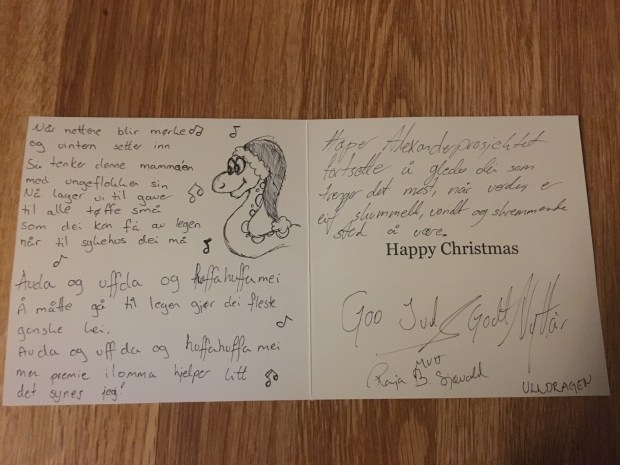 Når nettene blir mørke
og vintern setter inn
Så tenker denne mammaen
med ungeflokken sin
Nå lager vi til gaver
til alle tøffe små
som dei kan få av legen
når til sykehus dei må
Auda og uffda og huffahuffamei
Å måtte gå til legen gjør dei fleste
ganske lei.
Auda og uff da og huffahuffa mei
men premie i lomma hjelper litt
det synes jeg!
Håper Alexanderprosjektet
fortsette å glede dei som
trenger det mest, når verden er
eit skummelt, vondt og skremmande
sted å være.
Happy Christmas
Goo Jul Godt Nyttår
MVH
Raija B.
ULLDRAGEN